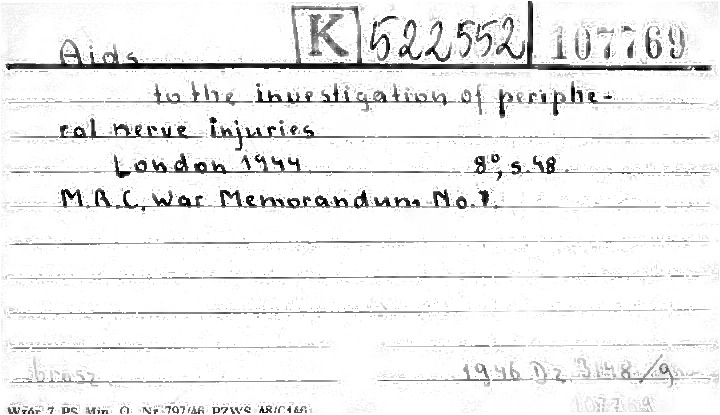 K 522552 107769
Aids
to the investigation of periphe-
ral nerve injuries
London 1944 8°, s. 48.
M.R.C. War Memorandum No.7.
brosz. 1946 Dz 3148/9
107769
Wzór 7 PS Min. O. Nr 797/46 PZWS A8/C146